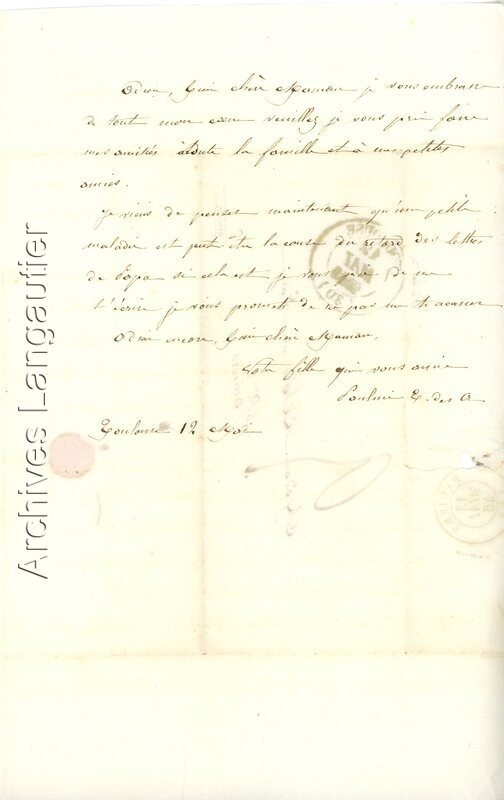 Adieu, bien chère Maman je vous embrasse
de tout mon cœur veuillez je vous prie faire
mes amitiés à toute la famille et à mes petites
amies.
Je viens de penser maintenant qu'une petite
maladie est peut être la cause du retard des lettres
de Papa si cela est je vous prie de me
l'écrire je vous promets de ne pas me tracasser
Adieu encore, bien chère Maman,
Votre fille qui vous aime
Pauline E. des A
Toulouse 12 Mai
Archives Langautier